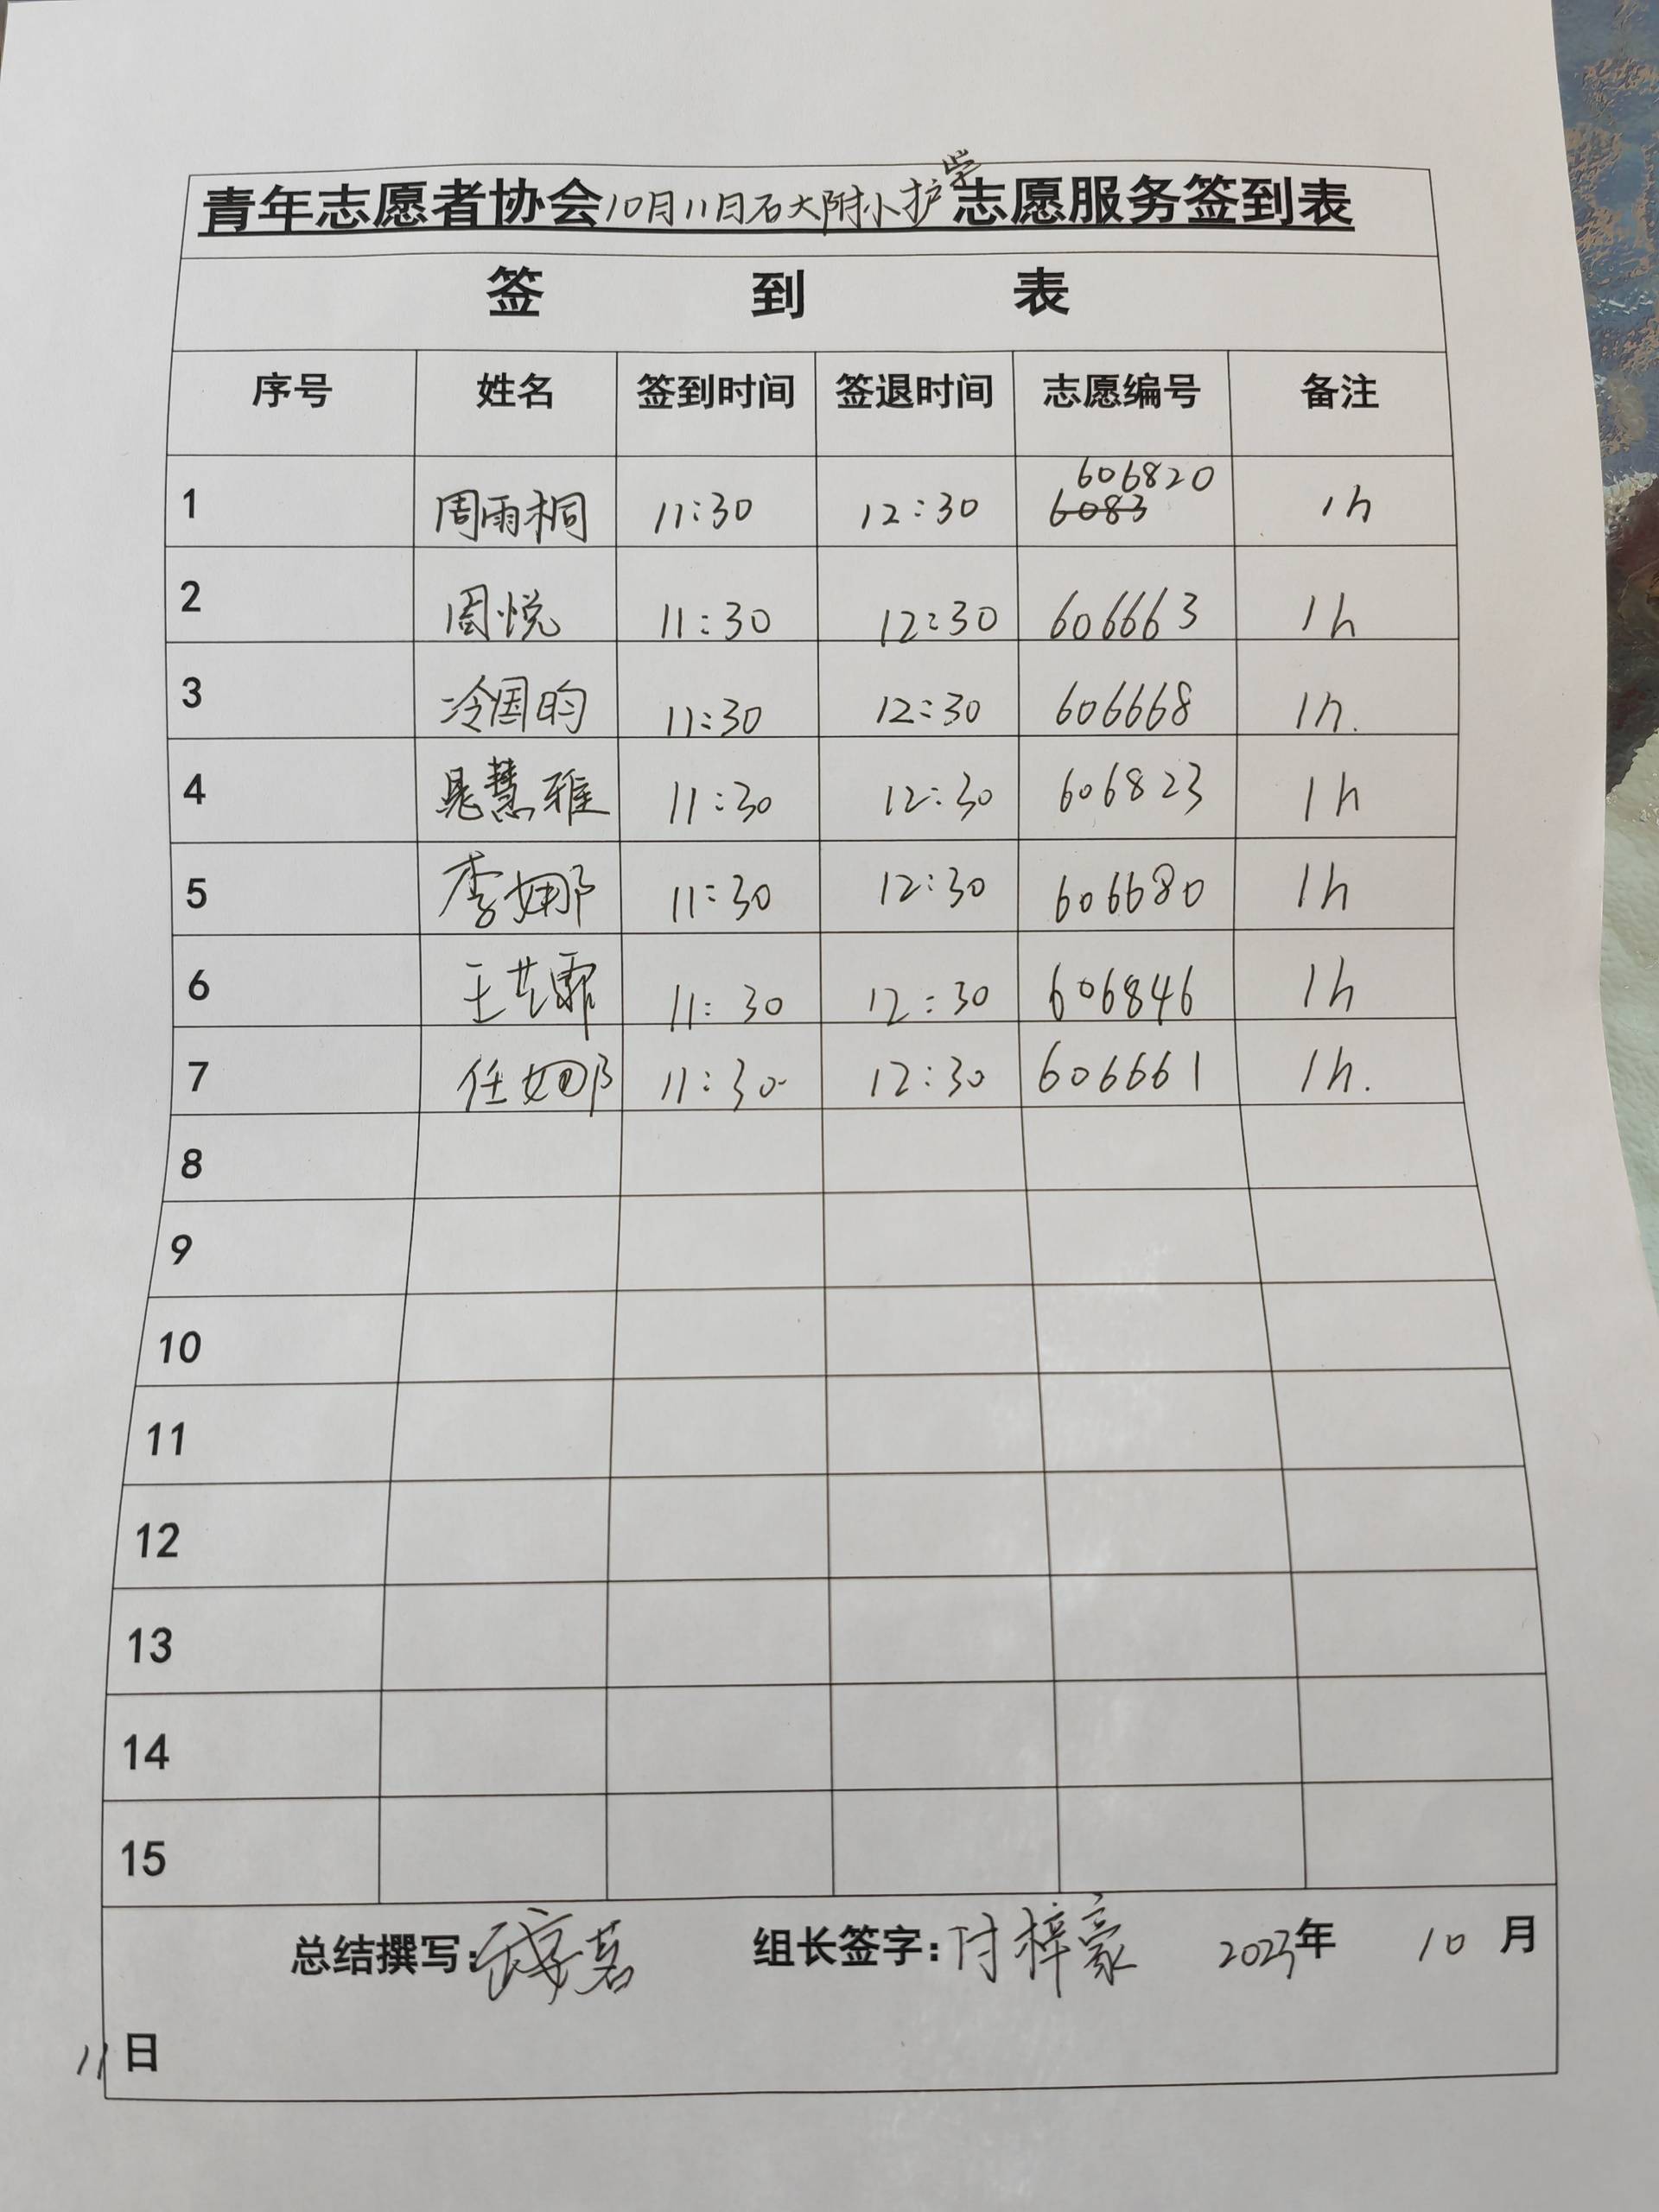 青年志愿者协会10月11日石大附小护学志愿服务签到表
签 到 表
序号 姓名 签到时间 签退时间 志愿编号 备注
606820
1 周雨桐 11:30 12:30 6083 1h
2 周悦 11:30 12:30 606663 1h
3 冷国昀 11:30 12:30 606668 1h.
4 晁慧雅 11:30 12:30 606823 1h
5 李娜 11:30 12:30 606680 1h
6 王艺霏 11:30 12:30 606846 1h
7 任娜 11:30 12:30 606661 1h.
8
9
10
11
12
13
14
15
总结撰写: 组长签字:付梓豪 2023年 10月
11日